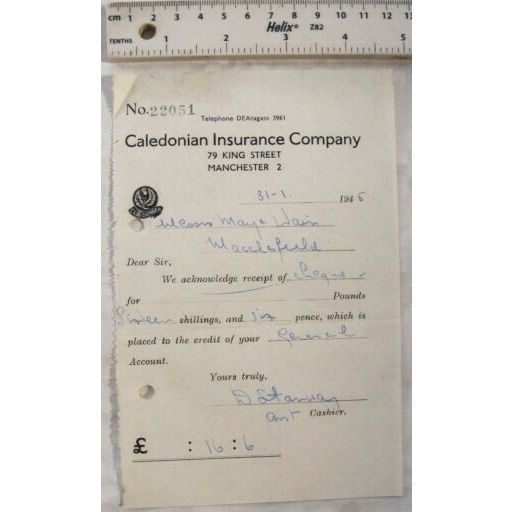 cm 1 2 3 4 5 6 7 8 9 10 11 12 13
Helix® ZB2
TENTHS 1 2 3 4 5
No. 22051
Telephone DEAnsgate 3961
Caledonian Insurance Company
79 KING STREET
MANCHESTER 2
31-1. 1946.
Messrs May & Wain
Macclesfield.
Dear Sir,
We acknowledge receipt of cheque
for Pounds
Sixteen shillings, and six pence, which is
placed to the credit of your General
Account.
Yours truly,
Asst Cashier.
£ : 16 : 6